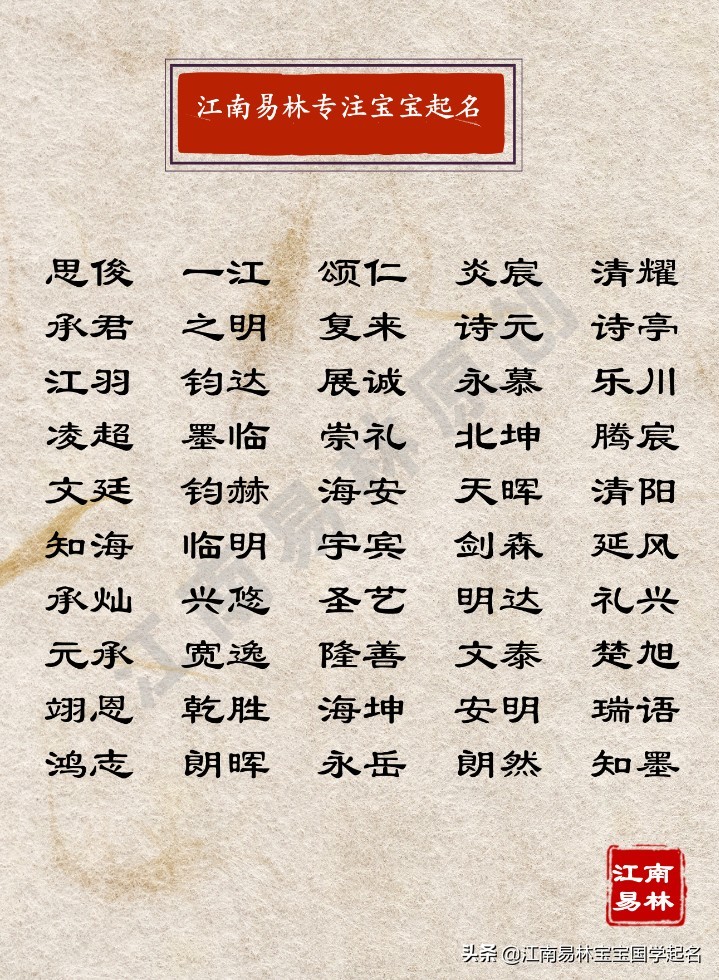 江南易林专注宝宝起名
思俊 一江 颂仁 炎宸 清耀
承君 之明 复来 诗元 诗亭
江羽 钧达 展诚 永慕 乐川
凌超 墨临 崇礼 北坤 腾宸
文廷 钧赫 海安 天晖 清阳
知海 临明 宇宾 剑森 延风
承灿 兴悠 圣艺 明达 礼兴
元承 宽逸 隆善 文泰 楚旭
翊恩 乾胜 海坤 安明 瑞语
鸿志 朗晖 永岳 朗然 知墨
江南易林原创
江南
易林
头条 @江南易林宝宝国学起名